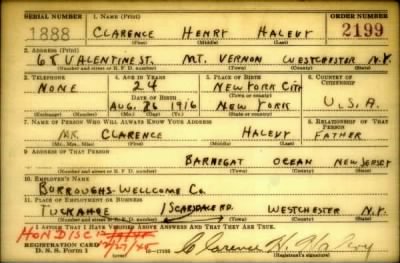 SERIAL NUMBER 1. NAME (Print) ORDER NUMBER
1888 CLARENCE HENRY HALEVY 2199
(First) (Middle) (Last)
2. ADDRESS (Print)
65 VALENTINE ST. MT. VERNON WESTCHESTER N.Y.
(Number and street or R. F. D. number) (Town) (County) (State)
3. TELEPHONE 4. AGE IN YEARS 5. PLACE OF BIRTH 6. COUNTRY OF CITIZENSHIP
NONE 24 NEW YORK CITY
DATE OF BIRTH (Town or county)
AUG. 26 1916 NEW YORK U.S.A.
(Mo.) (Day) (Yr.) (State or country)
7. NAME OF PERSON WHO WILL ALWAYS KNOW YOUR ADDRESS 8. RELATIONSHIP OF THAT PERSON
MR. CLARENCE HALEVY FATHER
(Mr., Mrs., Miss) (First) (Middle) (Last)
9. ADDRESS OF THAT PERSON
BARNEGAT OCEAN NEW JERSEY
(Number and street or R. F. D. number) (Town) (County) (State)
10. EMPLOYER'S NAME
BURROUGHS-WELLCOME CO.
11. PLACE OF EMPLOYMENT OR BUSINESS
TUCKAHOE 1 SCARSDALE RD. WESTCHESTER N.Y.
(Number and street or R. F. D. number) (Town) (County) (State)
I AFFIRM THAT I HAVE VERIFIED ABOVE ANSWERS AND THAT THEY ARE TRUE.
HON DISC
REGISTRATION CARD
D. S. S. Form 1 Clarence H. Halevy
(Registrant's signature)